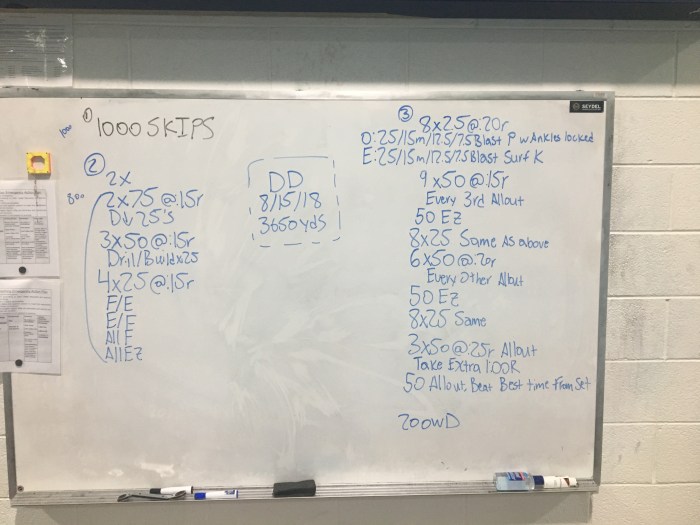 SEYDEL
①
1000
1000 SKIPS
②
2X
800
2x75 @:15r
D↓ 25's
3x50@:15r
Drill/Buildx25
4x25@:15r
F/E
E/F
All F
All EZ
DD
8/15/18
3650yds
③
8x25@:20r
O:25/15m/12.5/7.5 Blast P w Ankles locked
E:25/15m/12.5/7.5 Blast Surf K
9x50@:15r
Every 3rd Allout
50 EZ
8x25 Same As above
6x50@:20r
Every Other Allout
50 EZ
8x25 Same
3x50@:25r Allout
Take Extra 1:00R
50 Allout, Beat Best time From Set
200WD